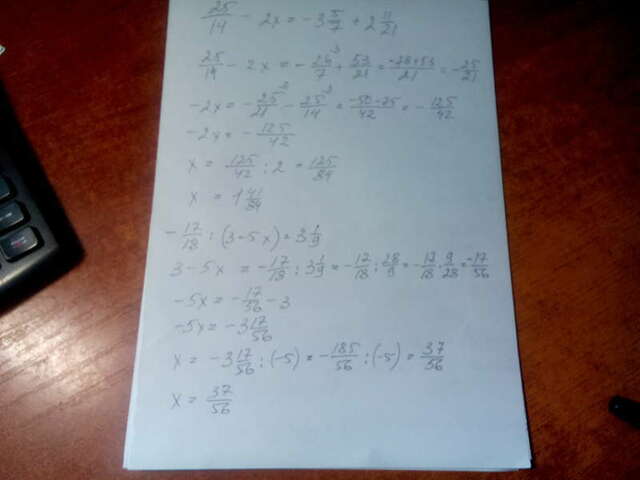 25/14 - 2x = -3 5/7 + 2 11/21
25/14 - 2x = - 26/7 ³ + 53/21 = -78+53/21 = - 25/21
-2x = - 25/21 ² - 25/14 ³ = -50-75/42 = - 125/42
-2x = - 125/42
x = 125/42 : 2 = 125/84
x = 1 41/84
- 17/18 : (3-5x) = 3 1/9
3-5x = - 17/18 : 3 1/9 = - 17/18 : 28/9 = - 17/18 · 9/28 = -17/56
-5x = - 17/56 - 3
-5x = -3 17/56
x = -3 17/56 : (-5) = - 185/56 : (-5) = 37/56
x = 37/56